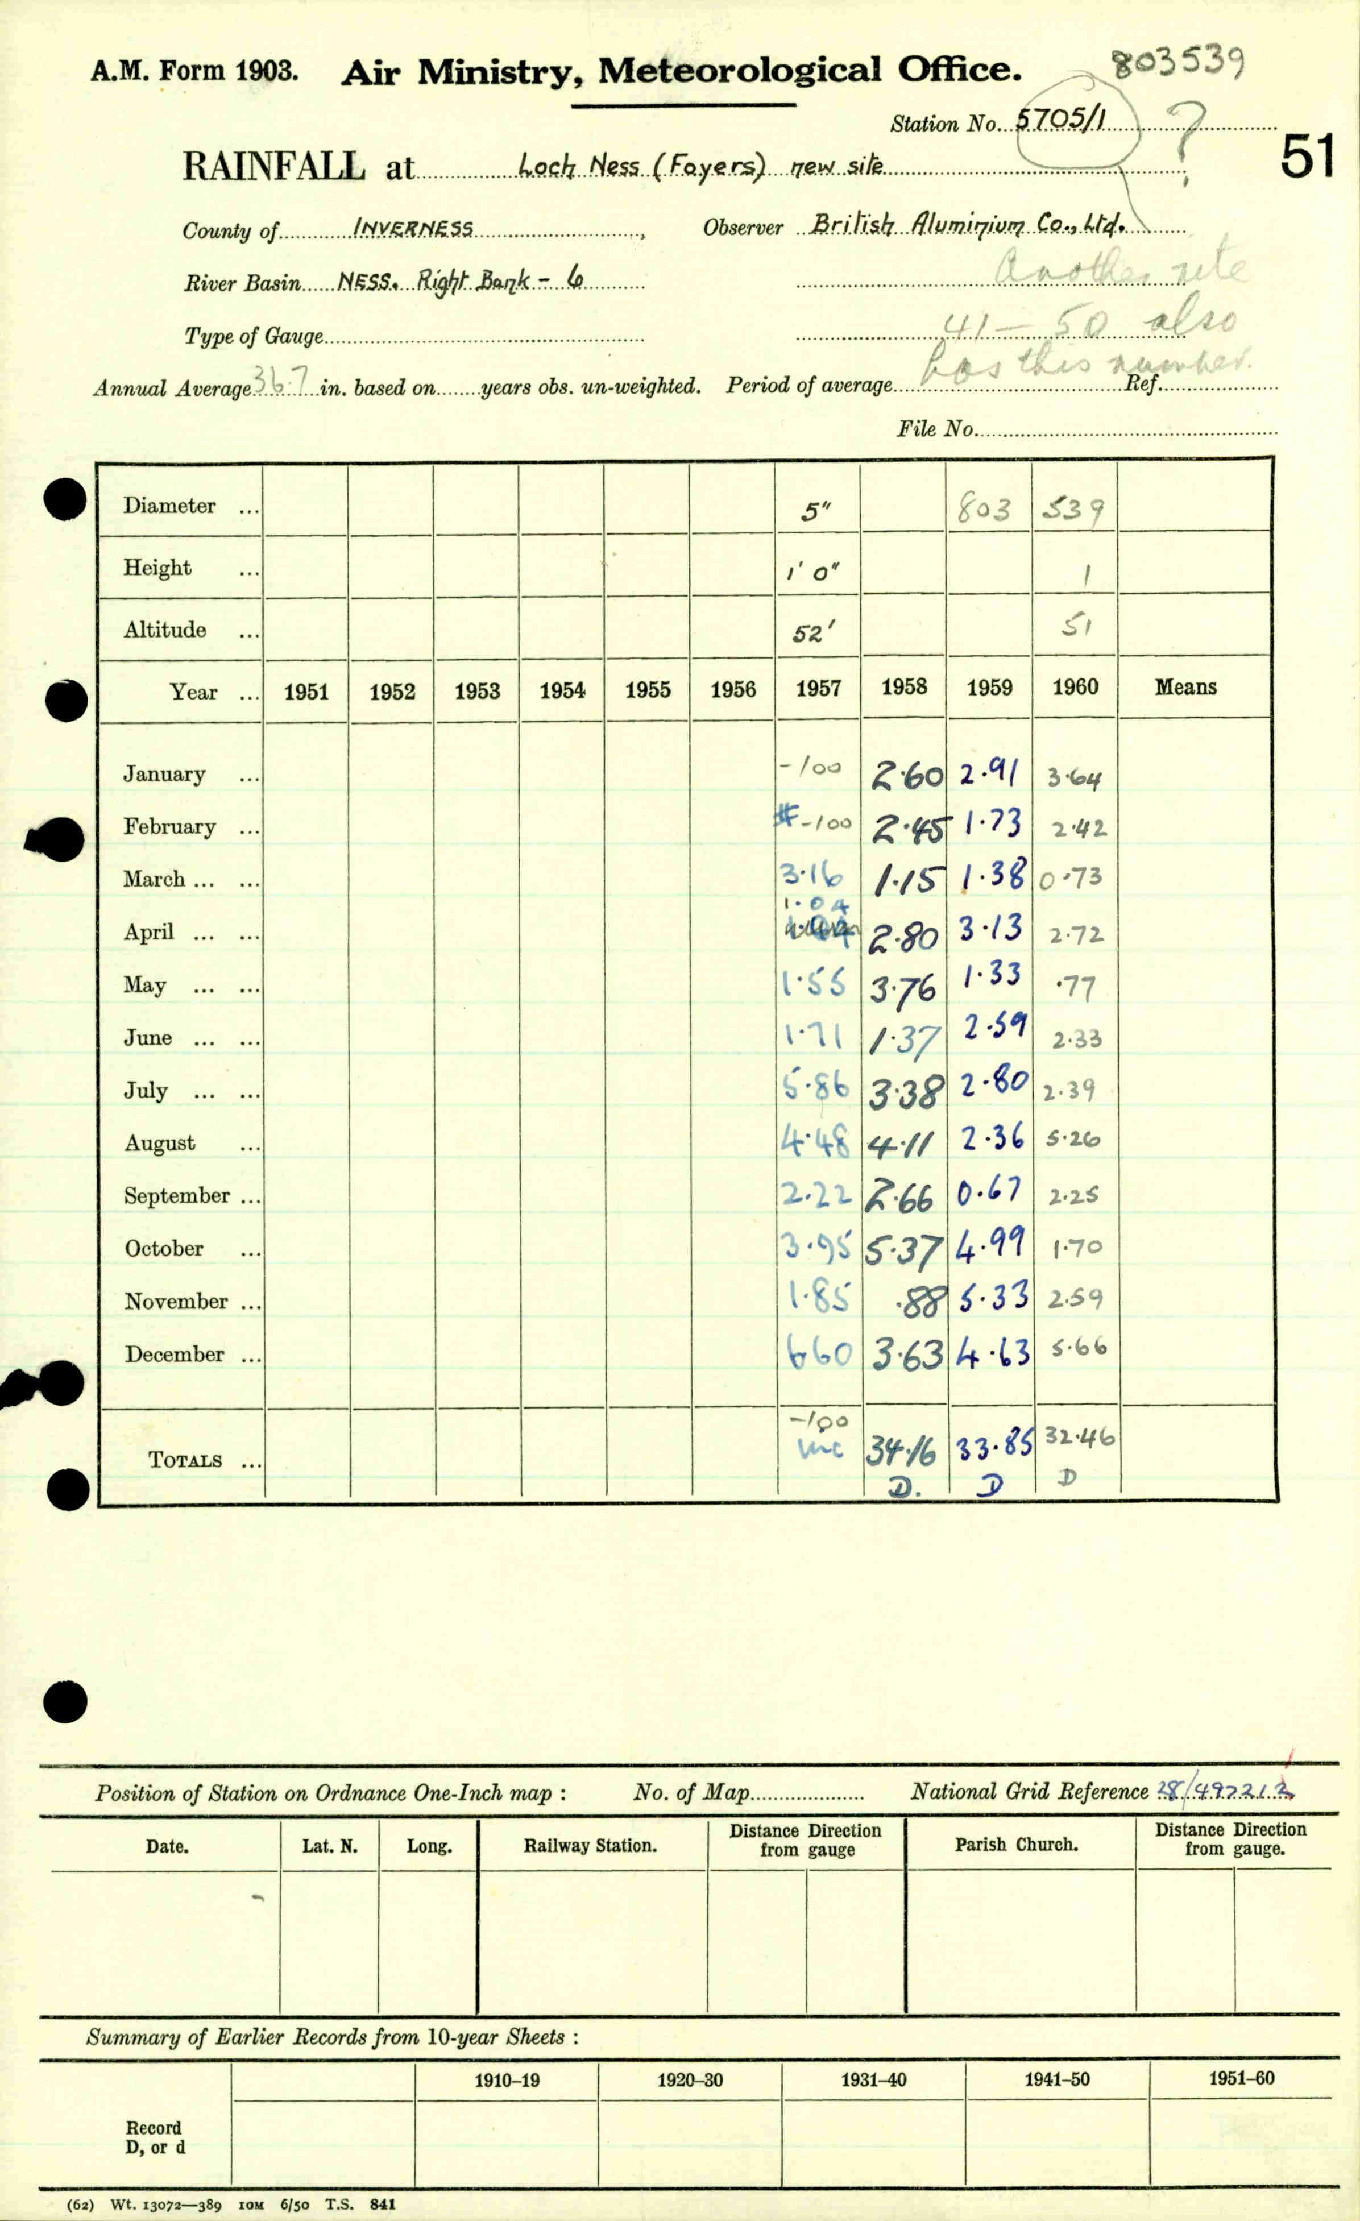 A.M. Form 1903. Air Ministry, Meteorological Office. 803539
Station No. 5705/1 ?
51
RAINFALL at Loch Ness (Foyers) new site
County of INVERNESS, Observer British Aluminium Co., Ltd.
River Basin NESS. Right Bank - 6 Another site
Type of Gauge 41-50 also
has this number.
Annual Average 36.7 in. based on years obs. un-weighted. Period of average Ref.
File No.
Diameter ... 5" 803 539
Height ... 1' 0" 1
Altitude ... 52' 51
Year ... 1951 1952 1953 1954 1955 1956 1957 1958 1959 1960 Means
January ... -100 2.60 2.91 3.64
February ... # -100 2.45 1.73 2.42
March ... ... 3.16 1.15 1.38 0.73
1.04
April ... ... 2.80 3.13 2.72
May ... ... 1.55 3.76 1.33 .77
June ... ... 1.71 1.37 2.59 2.33
July ... ... 5.86 3.38 2.80 2.39
August ... 4.48 4.11 2.36 5.26
September ... 2.22 2.66 0.67 2.25
October ... 3.95 5.37 4.99 1.70
November ... 1.85 .88 5.33 2.59
December ... 660 3.63 4.63 5.66
-100
TOTALS ... inc 34.16 33.85 32.46
D. D D
Position of Station on Ordnance One-Inch map : No. of Map National Grid Reference 28/497212
Date. Lat. N. Long. Railway Station. Distance Direction from gauge Parish Church. Distance Direction from gauge.
Summary of Earlier Records from 10-year Sheets :
1910–19 1920–30 1931–40 1941–50 1951–60
Record
D, or d
(62) Wt. 13072—389 10M 6/50 T.S. 841